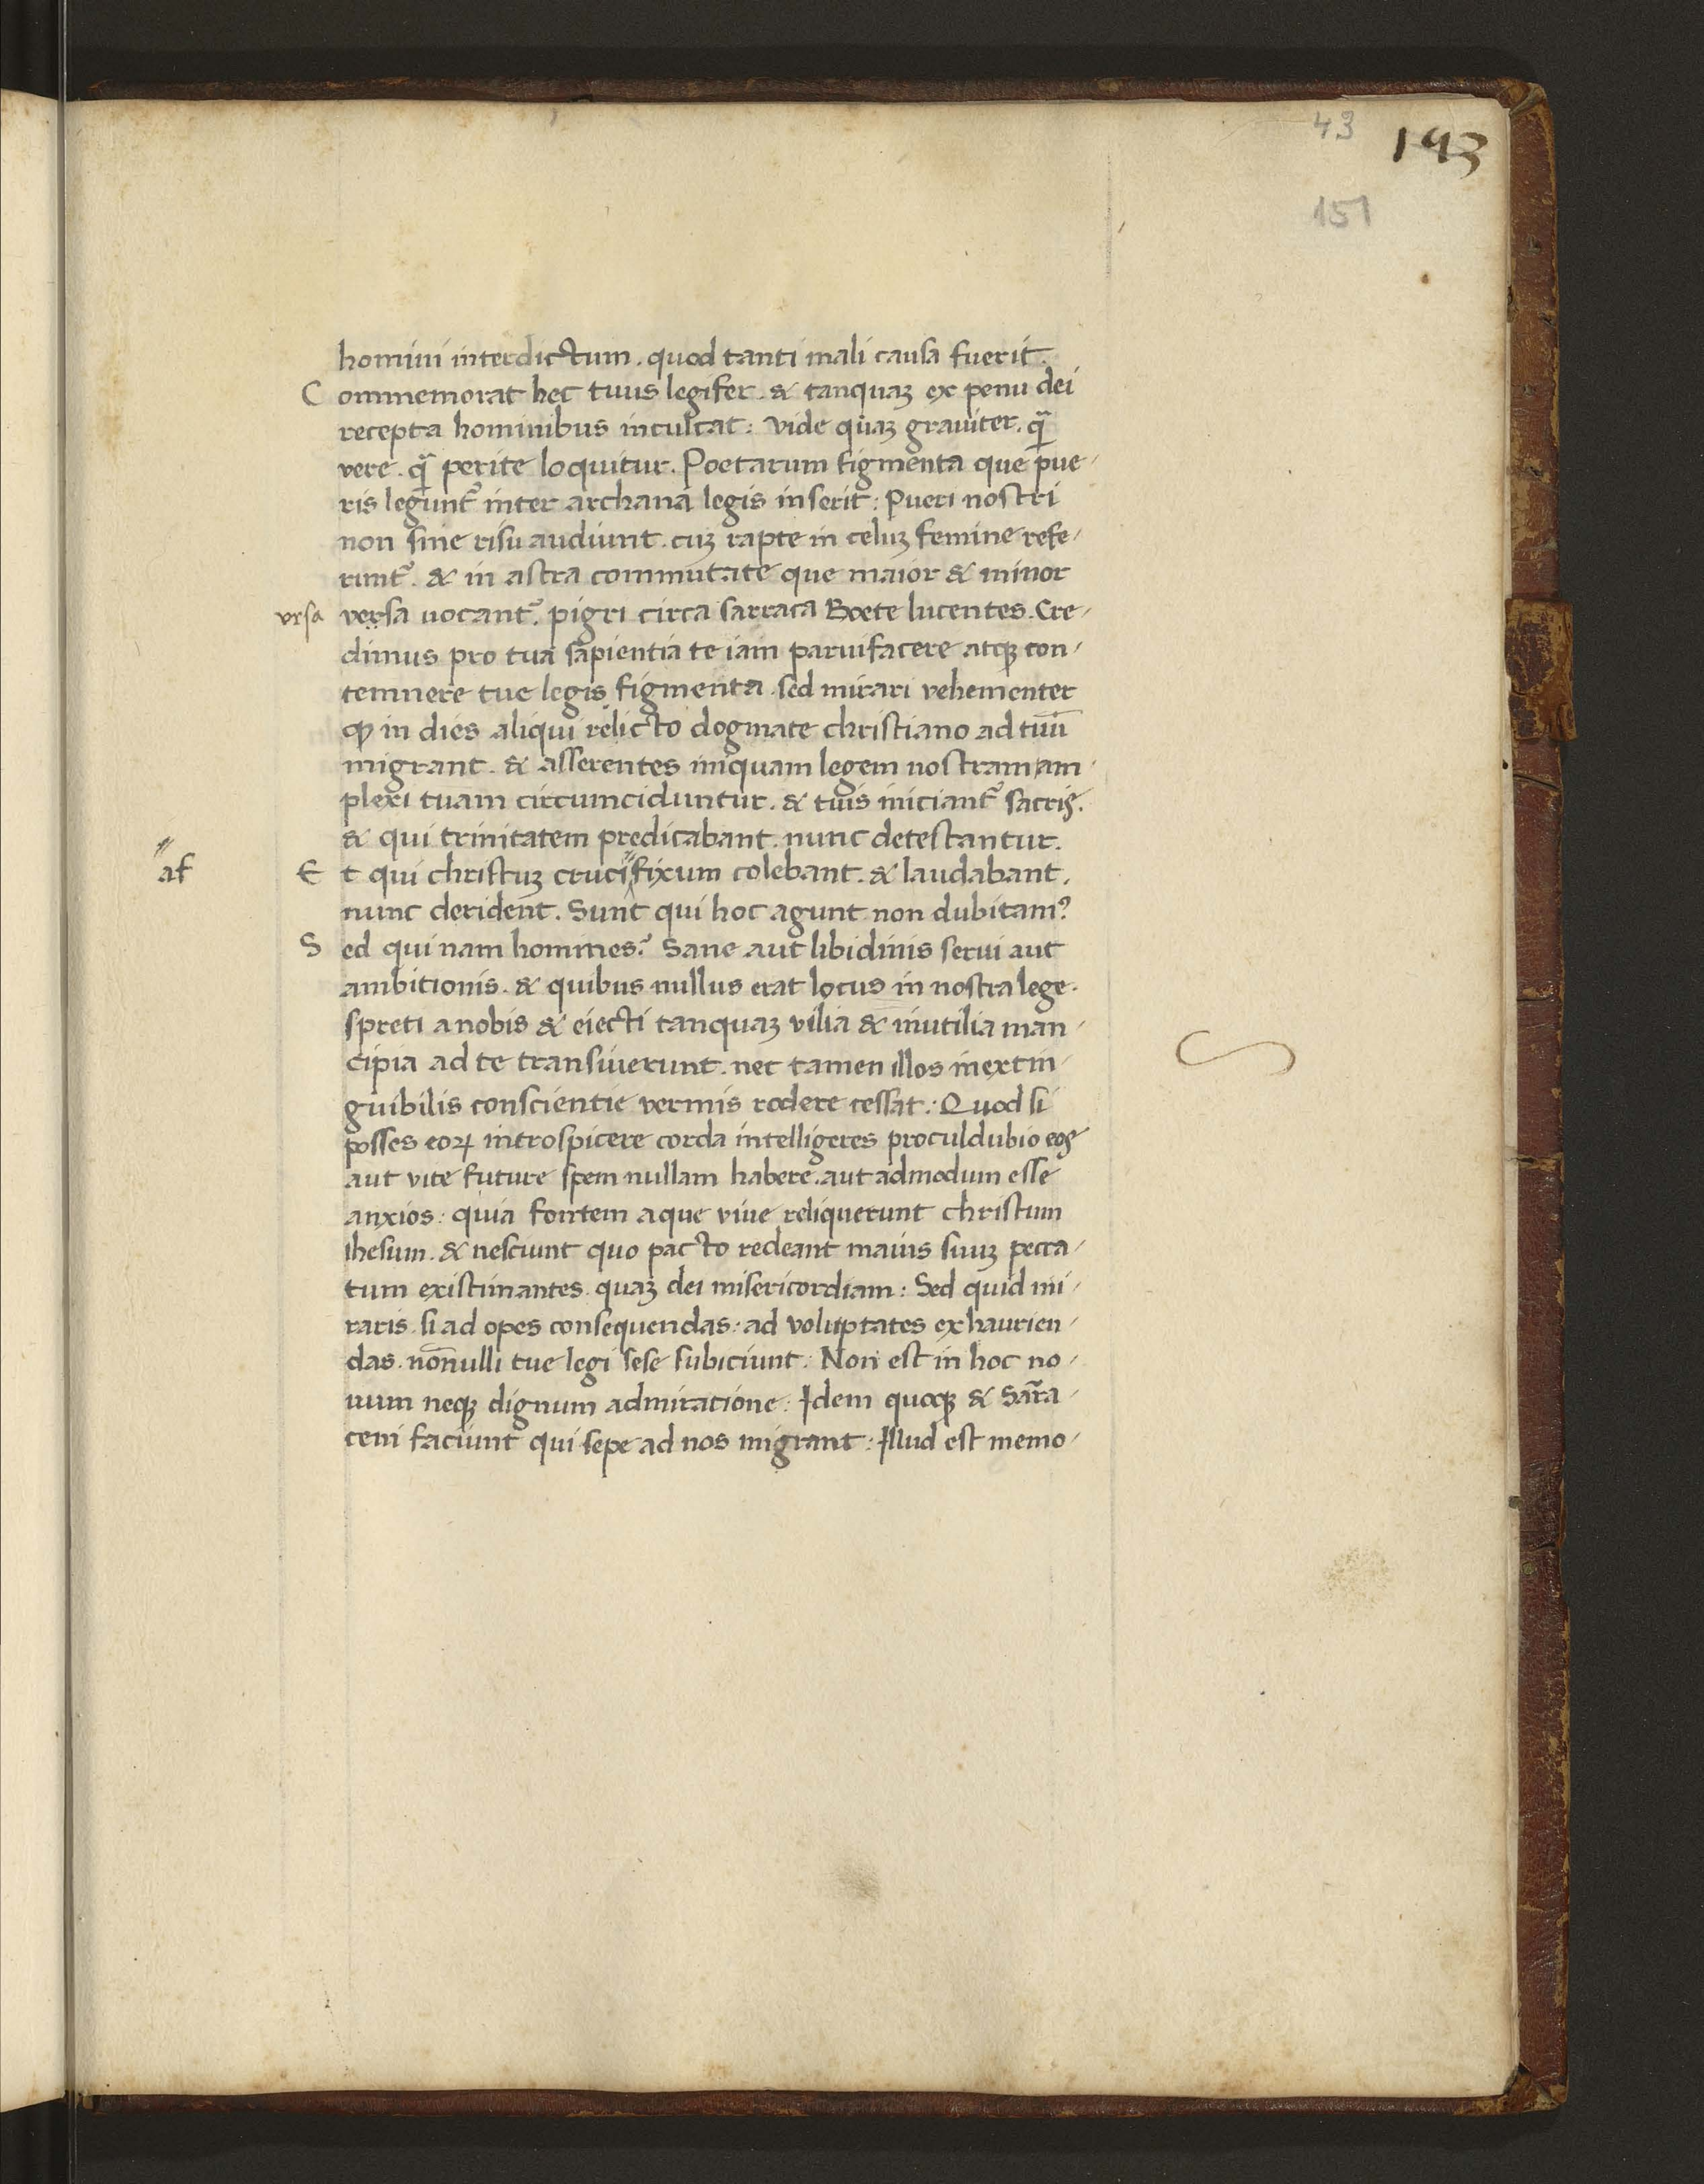 43 143
151
homini interdictum. quod tanti mali causa fuerit.
Commemorat hec tuus legifer. & tanquaʒ ex penu dei
recepta hominibus inculcat: Vide quaʒ grauiter. q̃
vere. q̃ perite loquitur. Poetarum figmenta que pue-
ris legunt᷑ inter archana legis inserit: Pueri nostri
non sine risu audiunt. cuʒ rapte in celuʒ femine refe-
runt᷑. & in astra commutate que maior & minor
vrsa versa uocant᷑. pigri circa sarraca Boete lucentes. Cre-
dimus pro tua sapientia te iam paruifacere atqꝫ con-
temnere tue legis figmenta. sed mirari vehementer
ꝙ in dies aliqui relicto dogmate christiano ad tuū
migrant. & asserentes iniquam legem nostram am-
plexi tuam circumciduntur. & tuis iniciant᷑ sacris.
& qui trinitatem predicabant. nunc detestantur.
af Et qui christuʒ crucifixum colebant. & laudabant.
nunc derident. Sunt qui hoc agunt non dubitamꝰ
Sed qui nam homines? Sane aut libidinis serui aut
ambitionis. & quibus nullus erat locus in nostra lege.
spreti a nobis & eiecti tanquaʒ vilia & inutilia man-
cipia ad te transiuerunt. nec tamen illos inextin-
guibilis conscientie vermis rodere cessat: Quod si
posses eoꝝ introspicere corda intelligeres proculdubio eos
aut vite future spem nullam habere. aut admodum esse
anxios: quia fontem aque viue reliquerunt christum
ihesum. & nesciunt quo pacto redeant maius suuʒ pecca-
tum existimantes. quaʒ dei misericordiam: Sed quid mi-
raris. si ad opes consequendas: ad voluptates exhaurien-
das. nōnulli tue legi sese subiciunt: Non est in hoc no-
uum neqꝫ dignum admiratione: Idem quoqꝫ & Sarra-
ceni faciunt qui sepe ad nos migrant: Illud est memo-